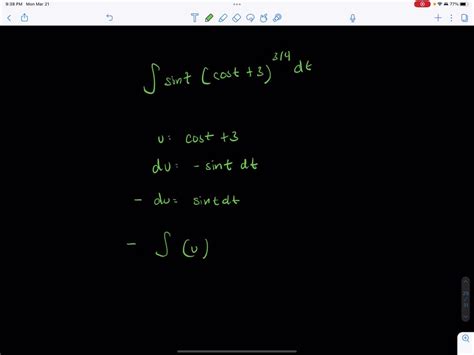 9:38 PM Mon Mar 21
77%
∫ sint (cost + 3)^3/4 dt
u = cost + 3
du = - sint dt
- du = sint dt
- ∫ (u)